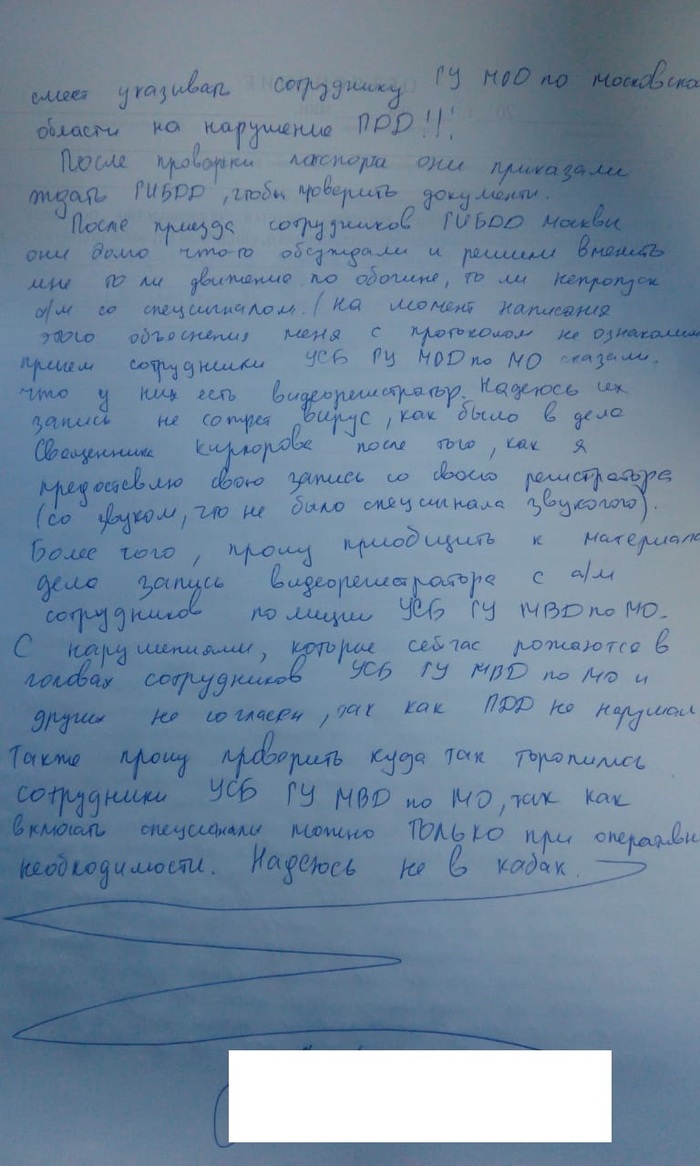 смеет указывать сотруднику ГУ МВД по Московско
области на нарушение ПДД!!!
После проверки паспорта они приказали
ждать ГИБДД, чтобы проверить документы.
После приезда сотрудников ГИБДД Москвы
они долго что-то обсуждали и решили вменить
мне то ли движение по обочине, то ли непропуск
а/м со спецсигналом. (на момент написания
этого объеснения меня с протоколом не ознакомили
причем сотрудники УСБ ГУ МВД по МО сказали.
что у них есть видеорегистратор. Надеюсь их
запись не сотрет вирус, как было в деле
Священника Киркорова после того, как я
предоставлю свою запись со своего регистратора
(со звуком, что не было спецсигнала звукогого).
Более того, прошу приобщить к материала
дела запись видеорегистратора с а/м
сотрудников полиции УСБ ГУ МВД по МО.
С нарушениями, которые сейчас рожаются в
головах сотрудников УСБ ГУ МВД по МО и
других не согласен, так как ПДД не нарушал
Также прошу проверить куда так торопились
сотрудники УСБ ГУ МВД по МО, так как
включать спецсигналы можно ТОЛЬКО при оперативн
необходимости. Надеюсь не в кабак.